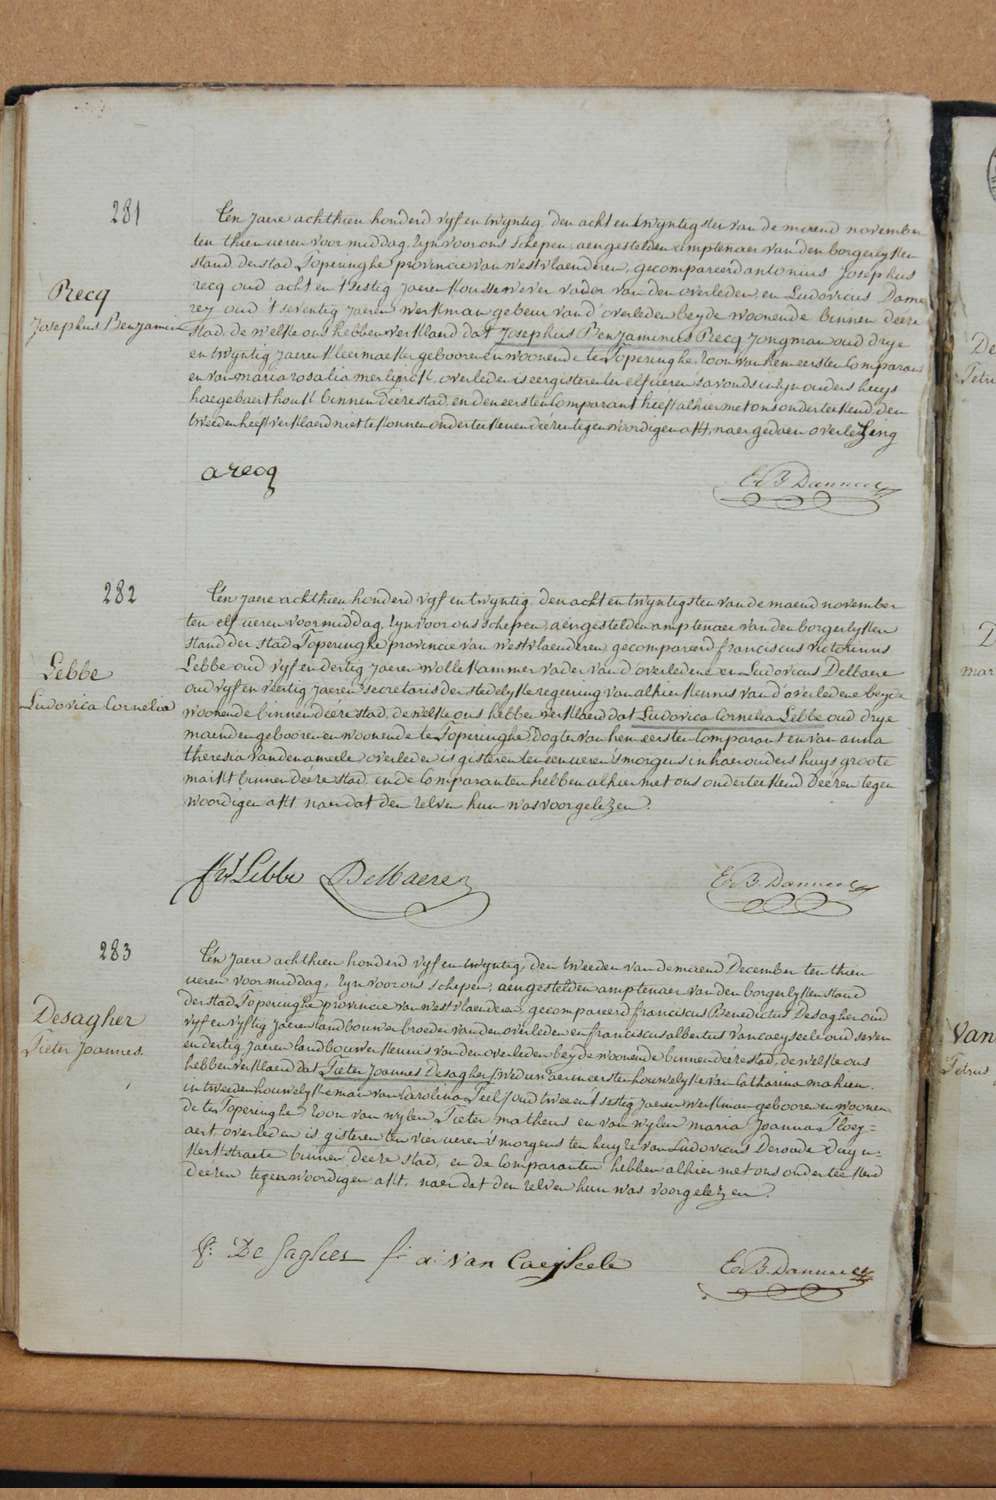 281
Precq
Josephus Benjamin
Ten jaere achthien honderd vyf en twyntig, den acht en twyntigsten van de maend november
ten thien ueren voormiddag, zyn voor ons schepen, aengestelden amptenaer van den borgerlyken
stand der stad Poperinghe provincie van westvlaenderen, gecompareerd antonius Josephus
recq oud acht en t'sestig jaeren koussewever vader van den overleden, en Ludovicus Dame
rey oud t'seventig jaeren werkman gebeur van d'overleden beyde woonende binnen deeze
stad, de welke ons hebben verklaerd dat Josephus Benjaminus Precq jongman oud drye
en twyntig jaeren kleermaeker gebooren en woonende te Poperinghe, zoon van hem eersten Comparant
en van maria rosalia merlynck, overleden is eergisteren ten elf ueren s'avonds in zyn ouders huys
haegebaert houk binnen deeze stad, en den eersten Comparant heeft alhier met ons onderteekend, den
tweeden heeft verklaerd niet te konnen onderteekenen deezen tegenwoordigen akt, naer gedaen overlezing
a recq
E B Dannoe
282
Lebbe
Ludovica Cornelia
Ten jaere achthien honderd vyf en twyntig, den acht en twyntigsten van de maend november
ten elf ueren voormiddag, zyn voor ons schepen, aengestelden amptenaer van den borgerlyken
stand der stad Poperinghe provincie van westvlaenderen, gecompareerd franciscus victorinus
Lebbe oud vyf en dertig jaeren wollekammer vader van d'overledene en Ludovicus Delbaere
oud vyf en viertig jaeren secretaris der stedelyke regering van alhier kennis van d'overledene beyde
woonende binnen deeze stad, de welke ons hebben verklaerd dat Ludovica Cornelia Lebbe oud drye
maenden gebooren en woonende te Poperinghe, Dogter van hem eersten Comparant en van anna
theresia vandenameele overleden is gisteren ten een uren s'morgens in haer ouders huys groote
markt binnen deeze stad en de Comparanten hebben alhier met ons onderteekend deezen tegen
woordigen akt naer dat den zelven hun was voorgelezen.
f v Lebbe Delbaere
E B Dannoe
283
Desagher
Pieter Joannes.
Ten jaere achthien honderd vyf en twyntig, den tweeden van de maend December ten thien
ueren voormiddag, zyn voor ons schepen, aengestelden amptenaer van den borgerlyken stand
der stad Poperinghe provincie van westvlaenderen, gecompareerd franciscus Benedictus Desagher oud
vyf en vyftig jaeren landbouwer broeder van den overleden en franciscus albertus vancaeyseele oud seven
en dertig jaeren landbouwer kennis van den overleden beyde woonende binnen deeze stad, de welke ons
hebben verklaerd dat Pieter Joannes Desagher (weduwaer in eersten houwelyke van Catharina mahieu,
in tweeden houwelyke man van Carolina Peel) oud twee en t'sestig jaeren werkman gebooren en woonen
de te Poperinghe, zoon van wylen Pieter matheus en van wylen maria Joanna Ploey=
aert overleden is gisteren ten vier ueren s'morgens ten huyze van Ludovicus Deraedt Duyn=
kerkstraete binnen deeze stad, en de Comparanten hebben alhier met ons onderteekend
deezen tegenwoordigen akt, naer dat den zelven hun was voorgelezen.
f: De Sagher f: a: Van Caeyseele
E B Dannoe
De
Petru
D
mar
Van
Petrus